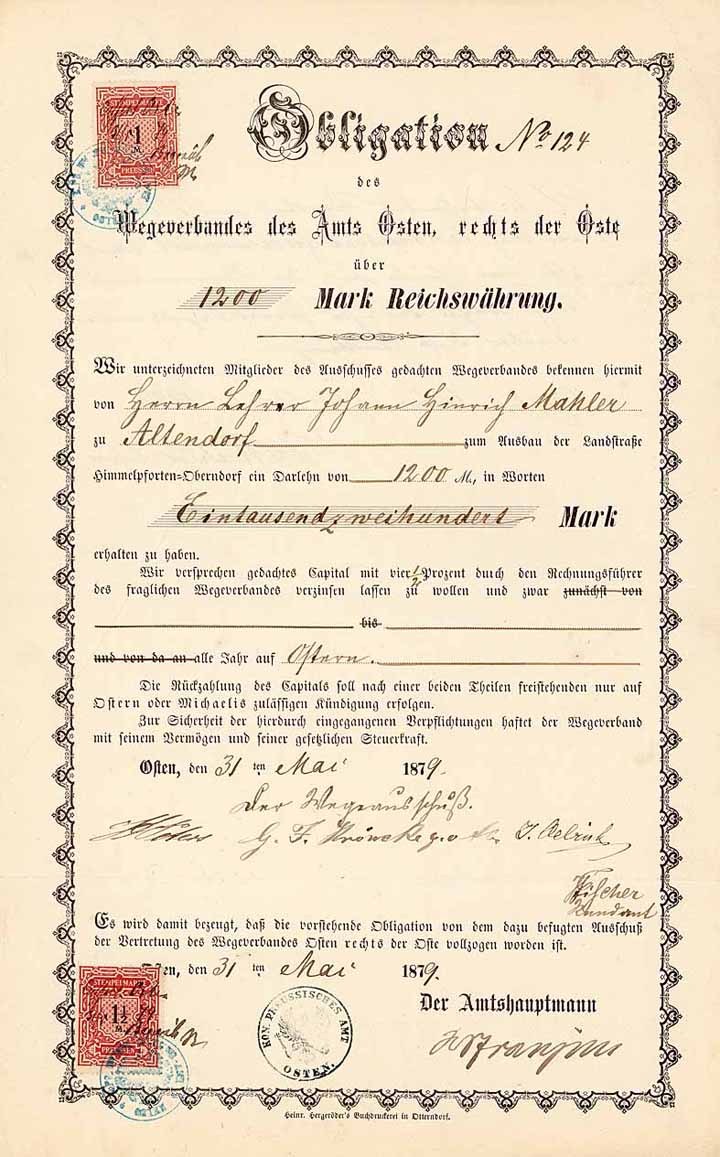 STEMPELMARKE
1
M.
PREUSSEN
Obligation No 124
des
Wegeverbandes des Amts Osten, rechts der Oste
über
1200 Mark Reichswährung.
Wir unterzeichneten Mitglieder des Ausschusses gedachten Wegeverbandes bekennen hiermit
von Herrn Lehrer Johann Hinrich Mahler
zu Altendorf zum Ausbau der Landstraße
Himmelpforten-Oberndorf ein Darlehn von 1200 M., in Worten
Eintausendzweihundert Mark
erhalten zu haben.
Wir versprechen gedachtes Capital mit vier 1/2 Prozent durch den Rechnungsführer
des fraglichen Wegeverbandes verzinsen lassen zu wollen und zwar zunächst von
bis
und von da an alle Jahr auf Ostern.
Die Rückzahlung des Capitals soll nach einer beiden Theilen freistehenden nur auf
Ostern oder Michaelis zulässigen Kündigung erfolgen.
Zur Sicherheit der hierdurch eingegangenen Verpflichtungen haftet der Wegeverband
mit seinem Vermögen und seiner gesetzlichen Steuerkraft.
Osten, den 31 ten Mai 1879.
Der Wegeausschuß.
G. F. J. Oelrich
Fischer
Es wird damit bezeugt, daß die vorstehende Obligation von dem dazu befugten Ausschuß
der Vertretung des Wegeverbandes Osten rechts der Oste vollzogen worden ist.
Osten, den 31 ten Mai 1879.
STEMPELMARKE
1½
M.
PREUSSEN
KÖN. PREUSSISCHES AMT
OSTEN.
Der Amtshauptmann
Heinr. Hergeröder's Buchdruckerei in Otterndorf.